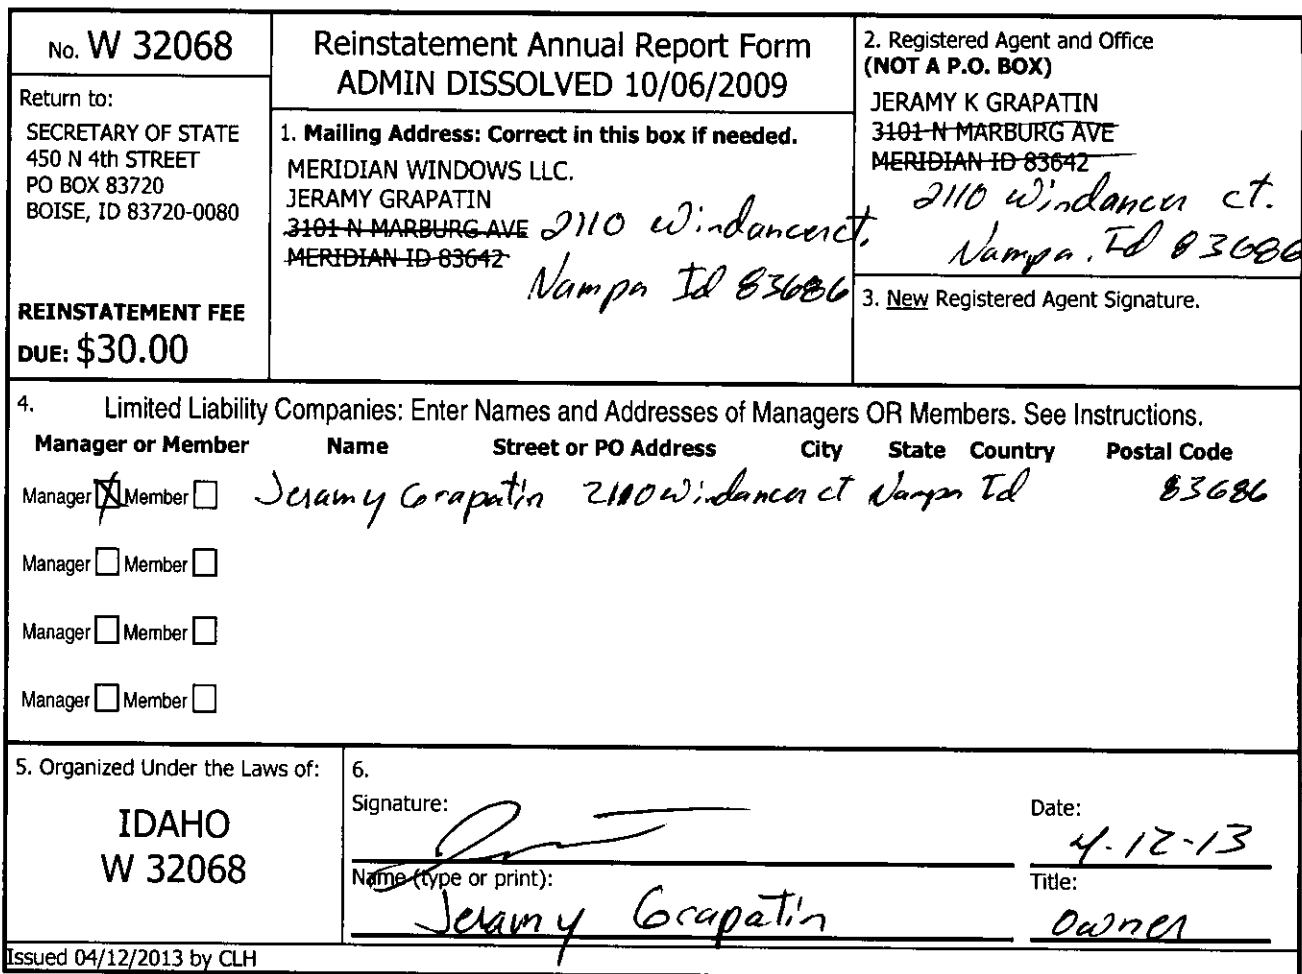 No. W 32068
Return to:
SECRETARY OF STATE
450 N 4th STREET
PO BOX 83720
BOISE, ID 83720-0080
REINSTATEMENT FEE
DUE: $30.00
Reinstatement Annual Report Form
ADMIN DISSOLVED 10/06/2009
1. Mailing Address: Correct in this box if needed.
MERIDIAN WINDOWS LLC.
JERAMY GRAPATIN
3101 N MARBURG AVE 2110 Windancer ct.
MERIDIAN ID 83642
Nampa Id 83686
2. Registered Agent and Office
(NOT A P.O. BOX)
JERAMY K GRAPATIN
3101 N MARBURG AVE
MERIDIAN ID 83642
2110 Windancer ct.
Nampa, Id 83686
3. New Registered Agent Signature.
4. Limited Liability Companies: Enter Names and Addresses of Managers OR Members. See Instructions.
Manager or Member Name Street or PO Address City State Country Postal Code
Manager Member Jeramy Grapatin 2110 Windancer ct Nampa Id 83686
Manager Member
Manager Member
Manager Member
5. Organized Under the Laws of:
IDAHO
W 32068
6.
Signature:
Date:
4-12-13
Name (type or print):
Jeramy Grapatin
Title:
owner
Issued 04/12/2013 by CLH